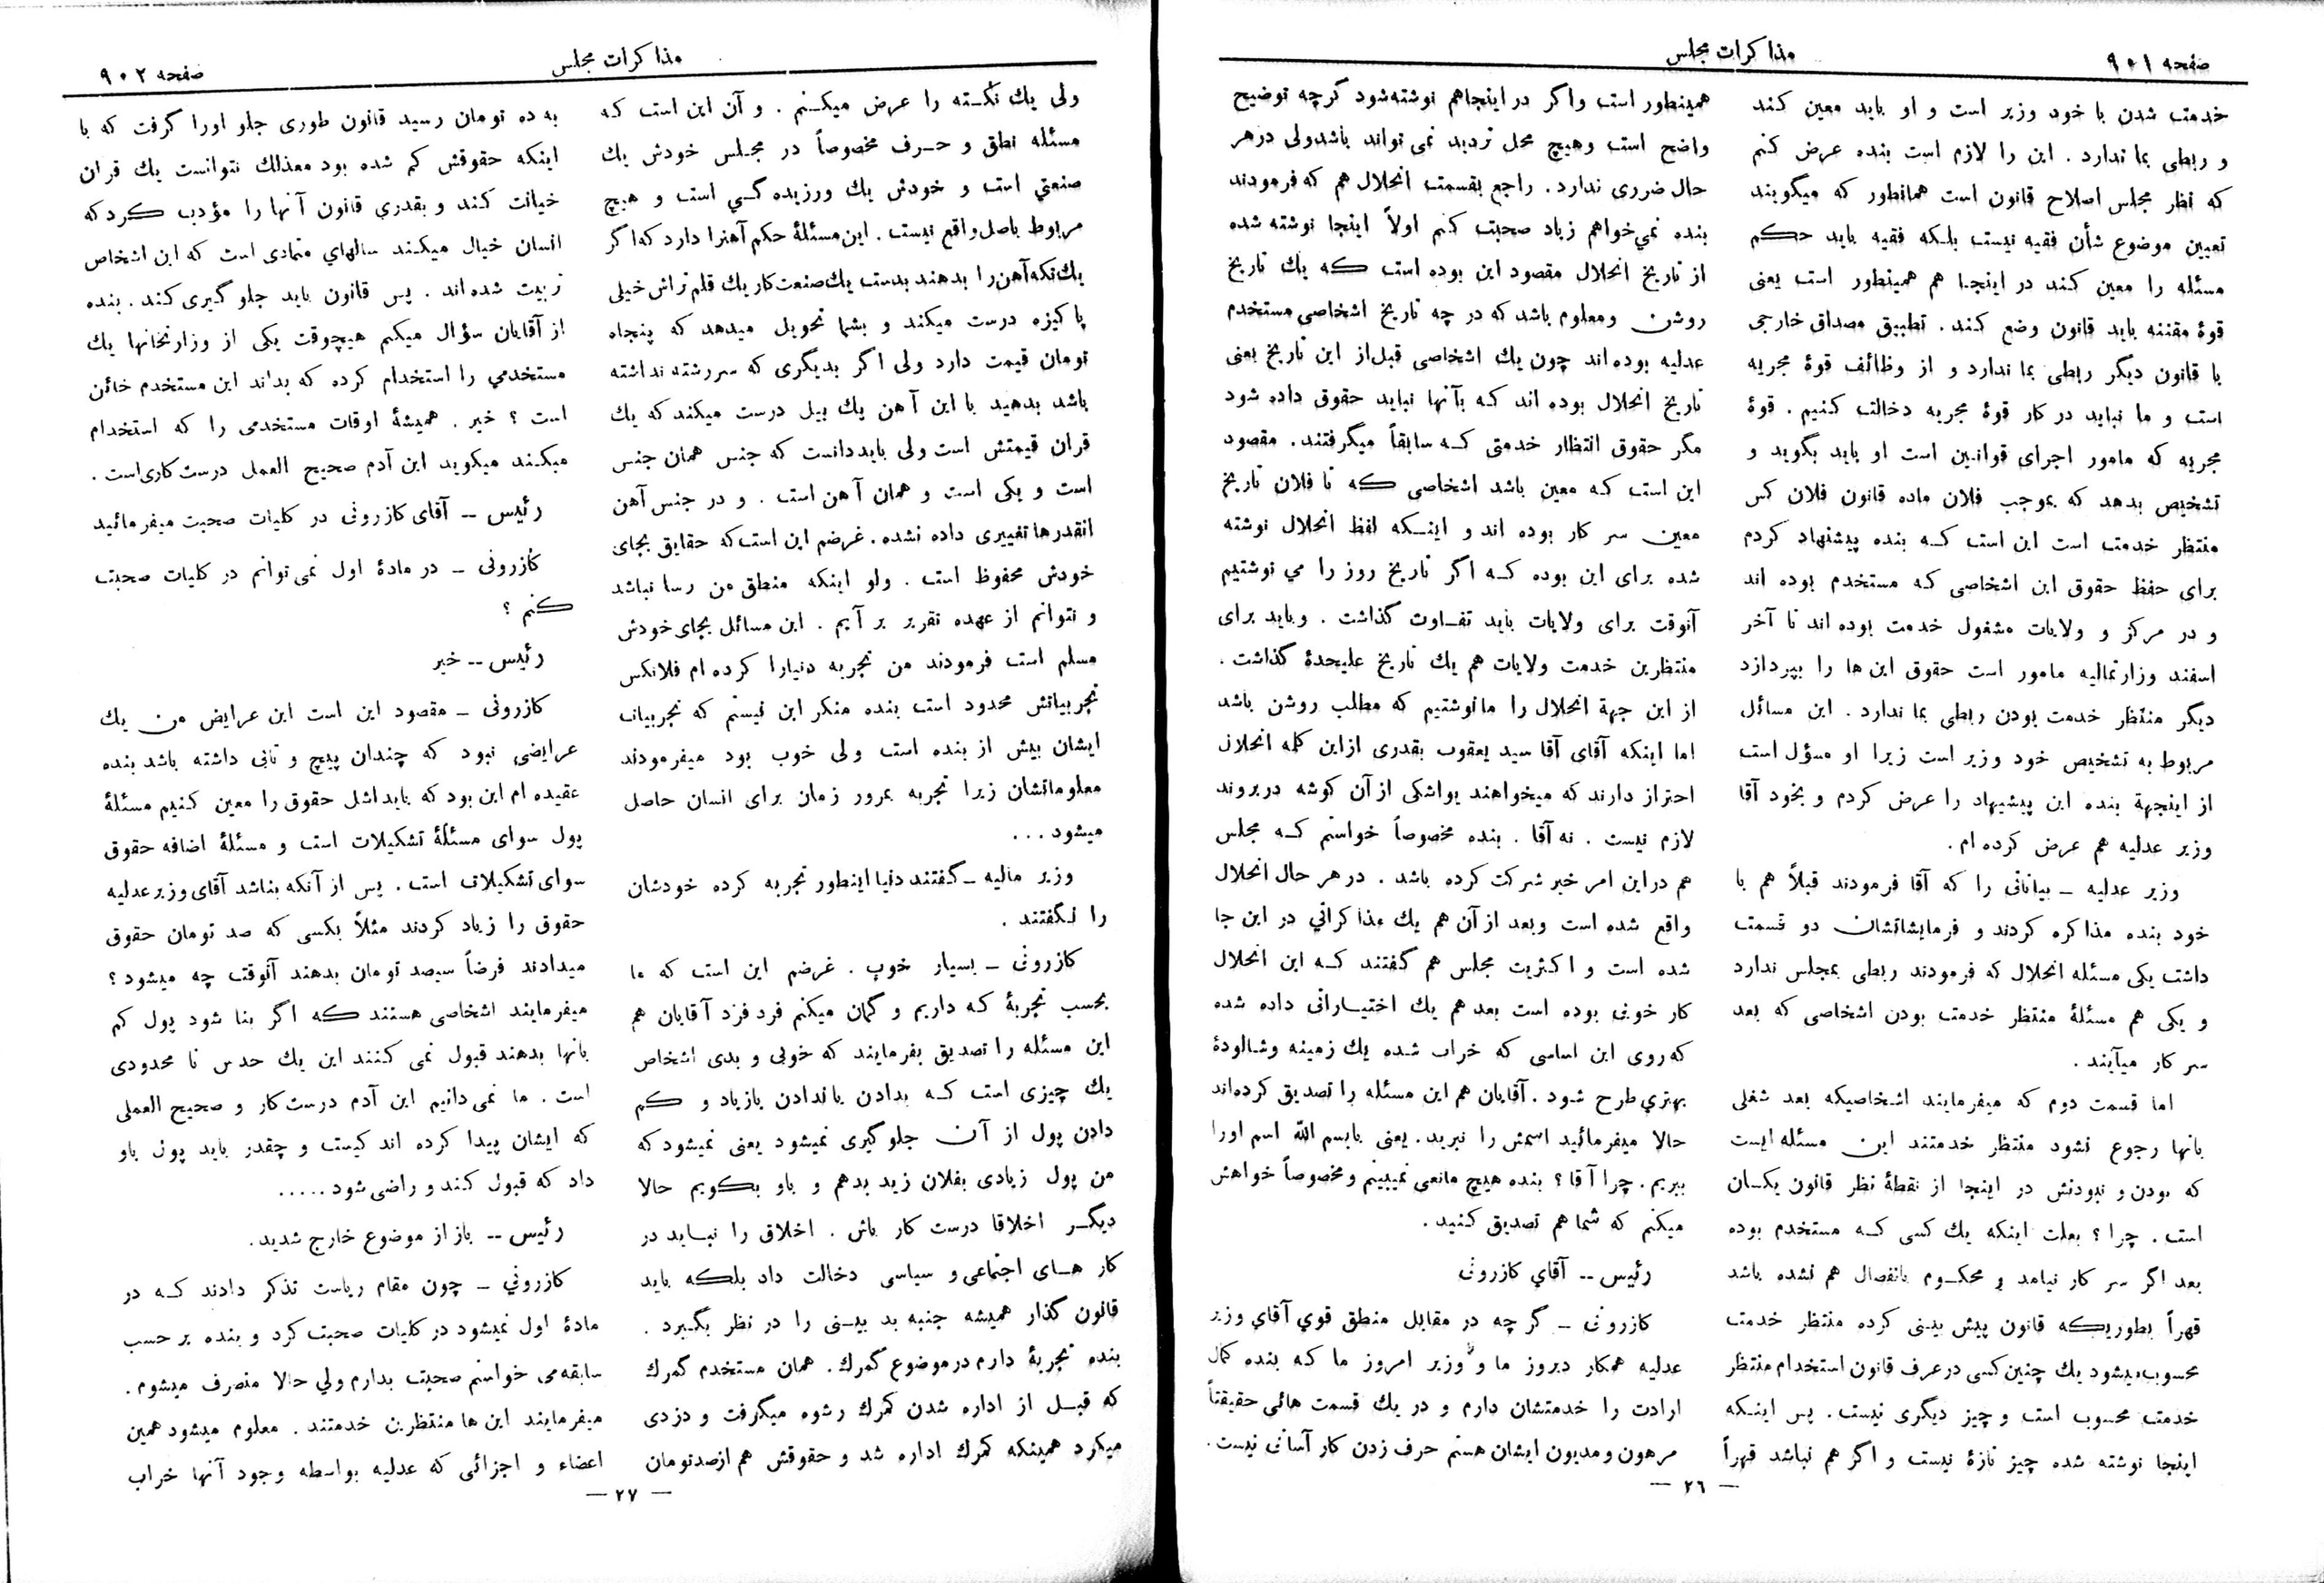 صفحه ۹۰۱
مذاکرات مجلس
خدمت شدن با خود وزیر است و او باید معین کند
و ربطی بما ندارد . این را لازم است بنده عرض کنم
که نظر مجلس اصلاح قانون است همانطور که میگویند
تعیین موضوع شأن فقیه نیست بلکه فقیه باید حکم
مسئله را معین کند در اینجا هم همینطور است یعنی
قوۀ مقننه باید قانون وضع کند . تطبیق مصداق خارجی
با قانون دیگر ربطی بما ندارد و از وظائف قوۀ مجریه
است و ما نباید در کار قوۀ مجریه دخالت کنیم . قوۀ
مجریه که مامور اجرای قوانین است او باید بگوید و
تشخیص بدهد که بموجب فلان ماده قانون فلان کس
منتظر خدمت است این است که بنده پیشنهاد کردم
برای حفظ حقوق این اشخاصی که مستخدم بوده اند
و در مرکز و ولایات مشغول خدمت بوده اند تا آخر
اسفند وزارتمالیه مامور است حقوق این ها را بپردازد
دیگر منتظر خدمت بودن ربطی بما ندارد . این مسائل
مربوط به تشخیص خود وزیر است زیرا او مسؤل است
از اینجهة بنده این پیشنهاد را عرض کردم و بخود آقا
وزیر عدلیه هم عرض کرده ام .
وزیر عدلیه ـ بیاناتی را که آقا فرمودند قبلاً هم با
خود بنده مذاکره کردند و فرمایشاتشان دو قسمت
داشت یکی مسئله انحلال که فرمودند ربطی بمجلس ندارد
و یکی هم مسئلۀ منتظر خدمت بودن اشخاصی که بعد
سر کار میآیند .
اما قسمت دوم که میفرمایند اشخاصیکه بعد شغلی
بانها رجوع نشود منتظر خدمتند این مسئله ایست
که بودن و نبودنش در اینجا از نقطۀ نظر قانون یکسان
است . چرا ؟ بعلت اینکه یك کسی که مستخدم بوده
بعد اگر سر کار نیامد و محکوم بانفصال هم نشده باشد
قهراً بطوریکه قانون پیش بینی کرده منتظر خدمت
محسوب میشود یك چنین کسی در عرف قانون استخدام منتظر
خدمت محسوب است و چیز دیگری نیست . پس اینکه
اینجا نوشته شده چیز تازۀ نیست و اگر هم نباشد قهراً
همینطور است واگر در اینجاهم نوشته شود گرچه توضیح
واضح است وهیچ محل تردید نمی تواند باشد ولی در هر
حال ضرری ندارد . راجع بقسمت انحلال هم که فرمودند
بنده نمی خواهم زیاد صحبت کنم اولاً اینجا نوشته شده
از تاریخ انحلال مقصود این بوده است که یك تاریخ
روشن ومعلوم باشد که در چه تاریخ اشخاصی مستخدم
عدلیه بوده اند چون یك اشخاصی قبل از این تاریخ یعنی
تاریخ انحلال بوده اند که بآنها نباید حقوق داده شود
مگر حقوق انتظار خدمتی که سابقاً میگرفتند . مقصود
این است که معین باشد اشخاصی که تا فلان تاریخ
معین سر کار بوده اند و اینکه لفظ انحلال نوشته
شده برای این بوده که اگر تاریخ روز را می نوشتیم
آنوقت برای ولایات باید تفاوت گذاشت . وباید برای
منتظرین خدمت ولایات هم یك تاریخ علیحدۀ گذاشت .
از این جهة انحلال را ما نوشتیم که مطلب روشن باشد
اما اینکه آقای آقا سید یعقوب بقدری از این کلمه انحلال
احتراز دارند که میخواهند یواشکی از آن گوشه در بروند
لازم نیست . نه آقا . بنده مخصوصاً خواستم که مجلس
هم در این امر خیر شرکت کرده باشد . در هر حال انحلال
واقع شده است وبعد از آن هم یك مذاکراتی در این جا
شده است و اکثریت مجلس هم گفتند که این انحلال
کار خوبی بوده است بعد هم یك اختیاراتی داده شده
که روی این اساسی که خراب شده یك زمینه وشالودۀ
بهتری طرح شود . آقایان هم این مسئله را تصدیق کرده اند
حالا میفرمائید اسمش را نبرید . یعنی بابسم الله اسم اورا
ببریم . چرا آقا ؟ بنده هیچ مانعی نمیبینم ومخصوصاً خواهش
میکنم که شما هم تصدیق کنید .
رئیس -- آقای کازرونی
کازرونی ـ گرچه در مقابل منطق قوی آقای وزیر
عدلیه همکار دیروز ما و وزیر امروز ما که بنده کمال
ارادت را خدمتشان دارم و در یك قسمت هائی حقیقتاً
مرهون ومدیون ایشان هستم حرف زدن کار آسانی نیست .
— ۲۶ —
مذاکرات مجلس
صفحه ۹۰۲
ولی یك نکته را عرض میکنم . و آن این است که
مسئله نطق و حرف مخصوصاً در مجلس خودش یك
صنعتی است و خودش یك ورزیده گی است و هیچ
مربوط باصل واقع نیست . این مسئلۀ حکم آهنرا دارد که اگر
یك تکه آهن را بدهند بدست یك صنعت کار یك قلم تراش خیلی
پاکیزه درست میکند و بشما تحویل میدهد که پنجاه
تومان قیمت دارد ولی اگر بدیگری که سر رشته نداشته
باشد بدهید با این آهن یك بیل درست میکند که یك
قران قیمتش است ولی باید دانست که جنس همان جنس
است و یکی است و همان آهن است . و در جنس آهن
انقدرها تغییری داده نشده . غرضم این است که حقایق بجای
خودش محفوظ است . ولو اینکه منطق من رسا نباشد
و نتوانم از عهده تقریر بر آیم . این مسائل بجای خودش
مسلم است فرمودند من تجربه دنیارا کرده ام فلانکس
تجربیاتش محدود است بنده منکر این نیستم که تجربیات
ایشان بیش از بنده است ولی خوب بود میفرمودند
معلوماتشان زیرا تجربه بمرور زمان برای انسان حاصل
میشود ...
وزیر مالیه ـ گفتند دنیا اینطور تجربه کرده خودشان
را نگفتند .
کازرونی ـ بسیار خوب . غرضم این است که ما
بحسب تجربۀ که داریم و گمان میکنم فرد فرد آقایان هم
این مسئله را تصدیق بفرمایند که خوبی و بدی اشخاص
یك چیزی است که بدادن یا ندادن یا زیاد و کم
دادن پول از آن جلوگیری نمیشود یعنی نمیشود که
من پول زیادی بفلان زید بدهم و باو بگویم حالا
دیگر اخلاقا درست کار باش . اخلاق را نباید در
کار های اجتماعی و سیاسی دخالت داد بلکه باید
قانون گذار همیشه جنبه بد بینی را در نظر بگیرد .
بنده تجربۀ دارم در موضوع گمرك . همان مستخدم گمرك
که قبل از اداره شدن گمرك رشوه میگرفت و دزدی
میکرد همینکه گمرك اداره شد و حقوقش هم از صد تومان
به ده تومان رسید قانون طوری جلو اورا گرفت که با
اینکه حقوقش کم شده بود معذلك نتوانست یك قران
خیانت کند و بقدری قانون آنها را مؤدب کرد که
انسان خیال میکند سالهای متمادی است که این اشخاص
تربیت شده اند . پس قانون باید جلو گیری کند . بنده
از آقایان سؤال میکنم هیچوقت یکی از وزارتخانها یك
مستخدمی را استخدام کرده که بداند این مستخدم خائن
است ؟ خیر . همیشۀ اوقات مستخدمی را که استخدام
میکند میگوید این آدم صحیح العمل درست کاری است .
رئیس -- آقای کازرونی در کلیات صحبت میفرمائید
کازرونی ـ در مادۀ اول نمی توانم در کلیات صحبت
کنم ؟
رئیس -- خیر
کازرونی ـ مقصود این است این عرایض من یك
عرایضی نبود که چندان پیچ و تابی داشته باشد بنده
عقیده ام این بود که باید اشل حقوق را معین کنیم مسئلۀ
پول سوای مسئلۀ تشکیلات است و مسئلۀ اضافه حقوق
سوای تشکیلات است . پس از آنکه بناشد آقای وزیر عدلیه
حقوق را زیاد کردند مثلاً بکسی که صد تومان حقوق
میدادند فرضاً سیصد تومان بدهند آنوقت چه میشود ؟
میفرمایند اشخاصی هستند که اگر بنا شود پول کم
بانها بدهند قبول نمی کنند این یك حدس تا محدودی
است . ما نمی دانیم این آدم درست کار و صحیح العملی
که ایشان پیدا کرده اند کیست و چقدر باید پول باو
داد که قبول کند و راضی شود .....
رئیس -- باز از موضوع خارج شدید .
کازرونی ـ چون مقام ریاست تذکر دادند که در
مادۀ اول نمیشود در کلیات صحبت کرد و بنده بر حسب
سابقه می خواستم صحبت بدارم ولی حالا منصرف میشوم .
میفرمایند این ها منتظرین خدمتند . معلوم میشود همین
اعضاء و اجزائی که عدلیه بواسطه وجود آنها خراب
— ۲۷ —